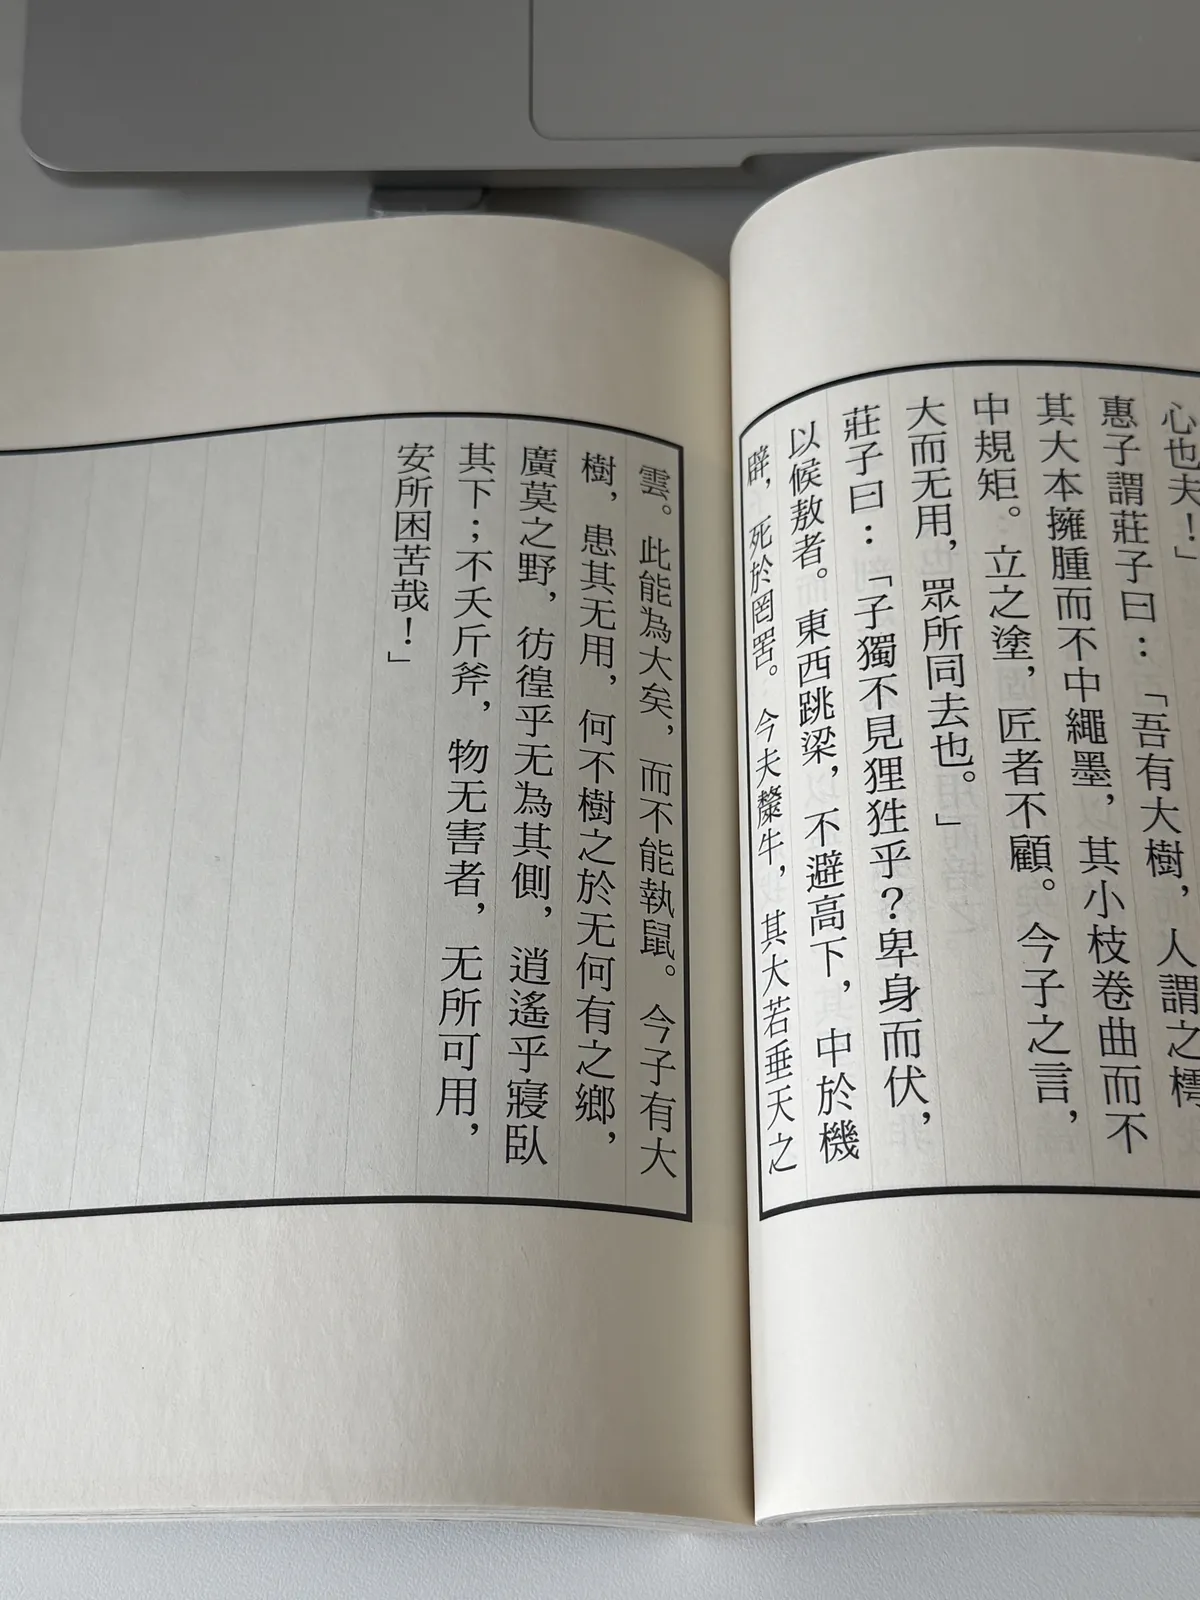 心也夫！」
惠子謂莊子曰：「吾有大樹，人謂之樗
其大本擁腫而不中繩墨，其小枝卷曲而不
中規矩。立之塗，匠者不顧。今子之言，
大而无用，眾所同去也。」
莊子曰：「子獨不見狸狌乎？卑身而伏，
以候敖者。東西跳梁，不避高下，中於機
辟，死於罔罟。今夫斄牛，其大若垂天之
雲。此能為大矣，而不能執鼠。今子有大
樹，患其无用，何不樹之於无何有之鄉，
廣莫之野，彷徨乎无為其側，逍遙乎寢臥
其下；不夭斤斧，物无害者，无所可用，
安所困苦哉！」